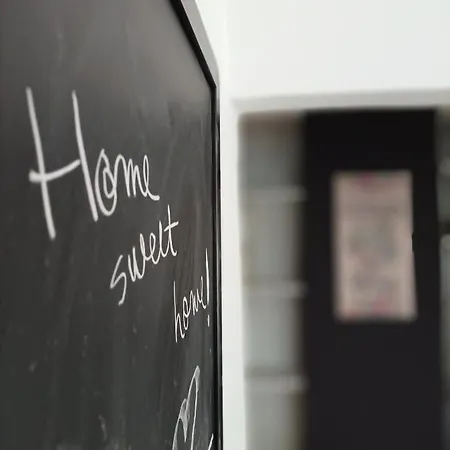 Home
sweet
home!